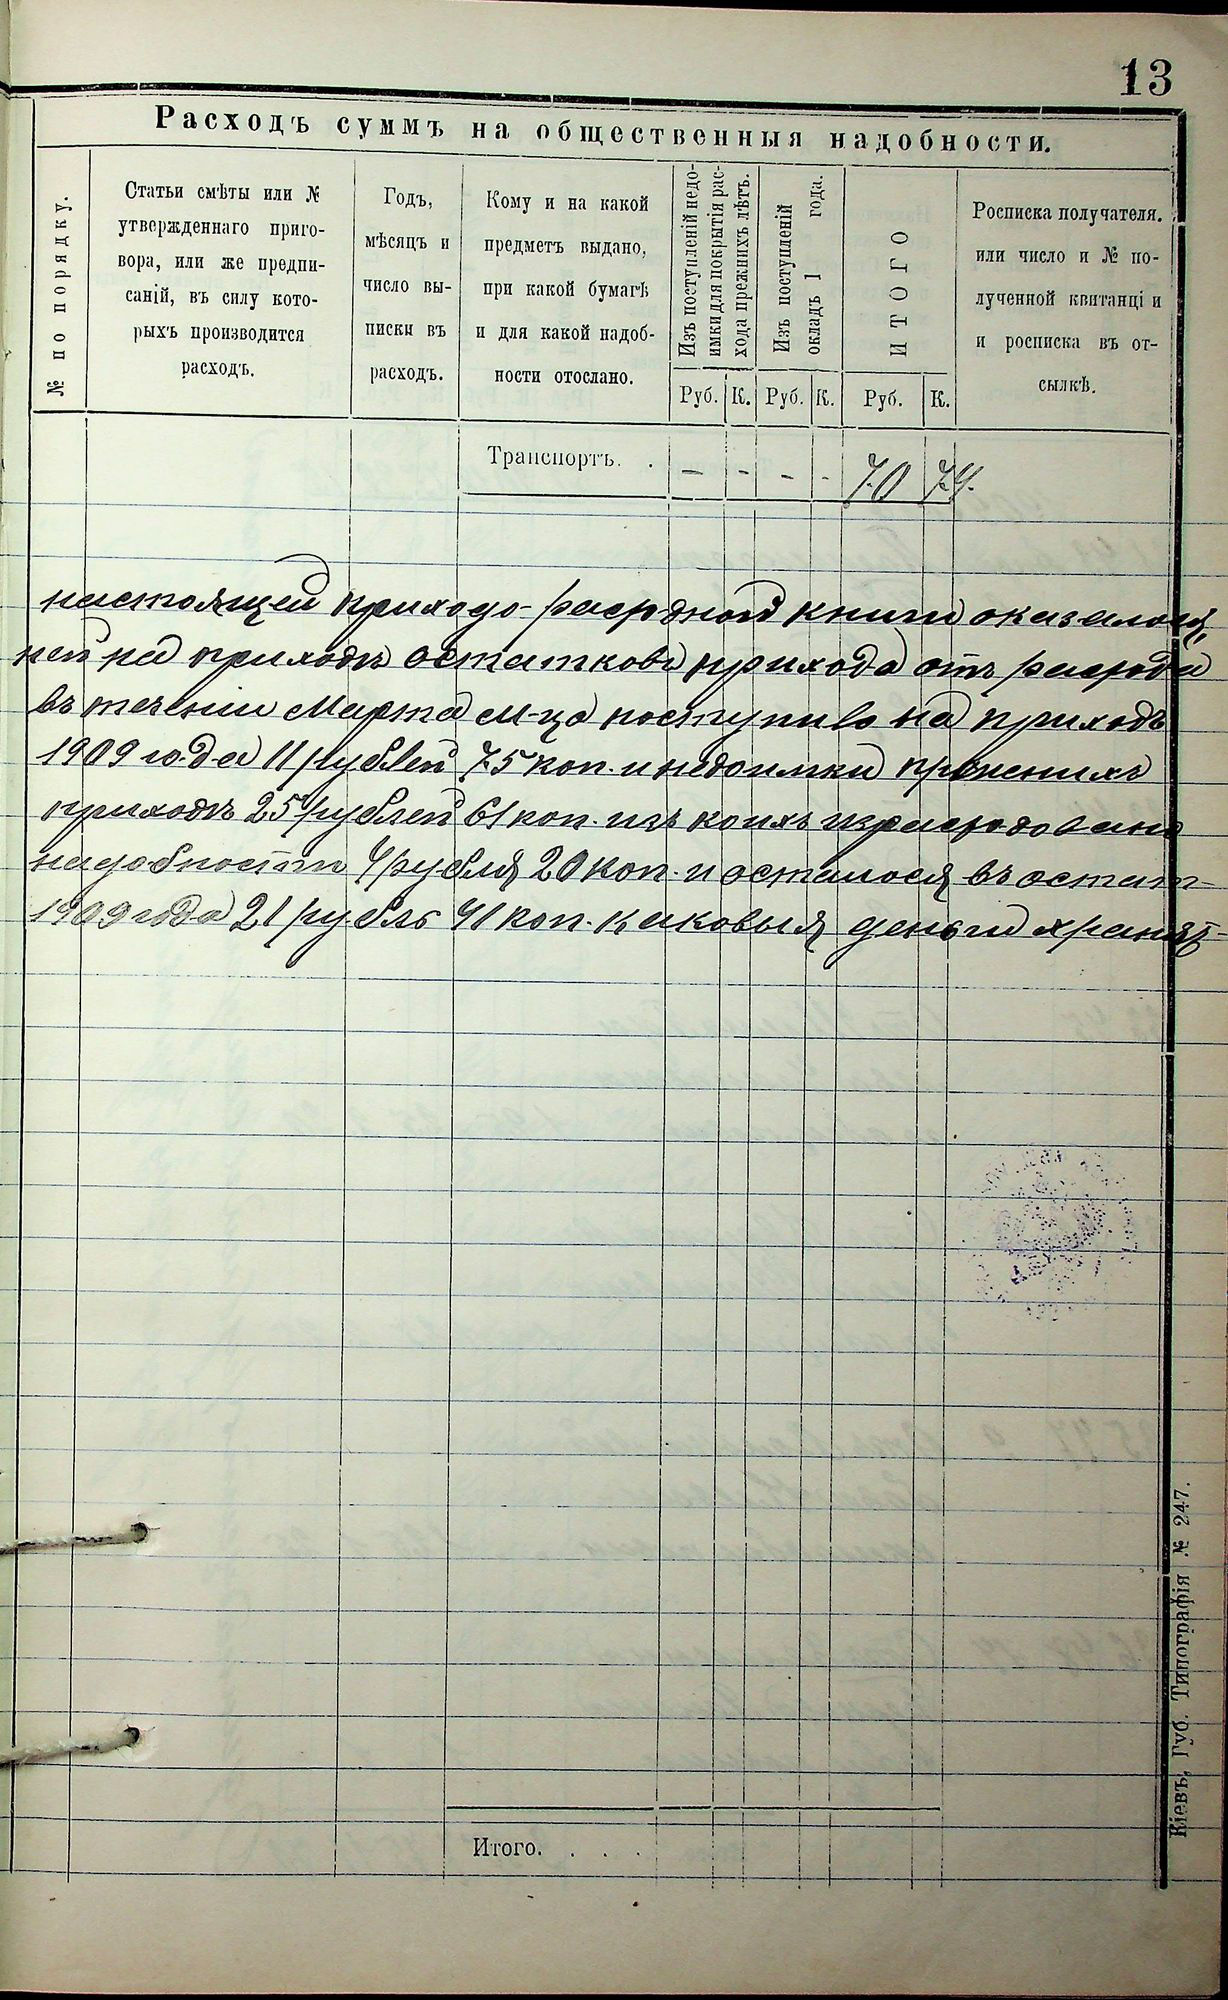 13
Расходъ суммъ на общественныя надобности.
№ по порядку.
Статьи смѣты или №
утвержденнаго приго-
вора, или же предпи-
саній, въ силу кото-
рыхъ производится
расходъ.
Годъ,
мѣсяцъ и
число вы-
писки въ
расходъ.
Кому и на какой
предметъ выдано,
при какой бумагѣ
и для какой надоб-
ности отослано.
Изъ поступленій недо-
имки для покрытія рас-
хода прежнихъ лѣтъ.
Изъ поступленій
окладъ 1 года.
ИТОГО
Росписка получателя.
или число и № по-
лученной квитанці и
и росписка въ от-
сылкѣ.
Руб. К. Руб. К. Руб. К.
Транспортъ. . - - - - 70 74.
настоящей приходо-расходной книги оказалось,
ней на приходѣ остатковъ прихода отъ расхода
въ теченіи Марта м-ца поступило на приходъ
1909 года 11 рублей 75 коп. и недоимки прежнихъ
приходѣ 25 рублей 61 коп. изъ коихъ израсходовано
надобности 4 рубля 20 коп. и осталося въ остат-
1909 года 21 рубль 41 коп. каковыя деньги хранят-
Итого. . . .
Кіевъ, Губ. Типографія № 247.